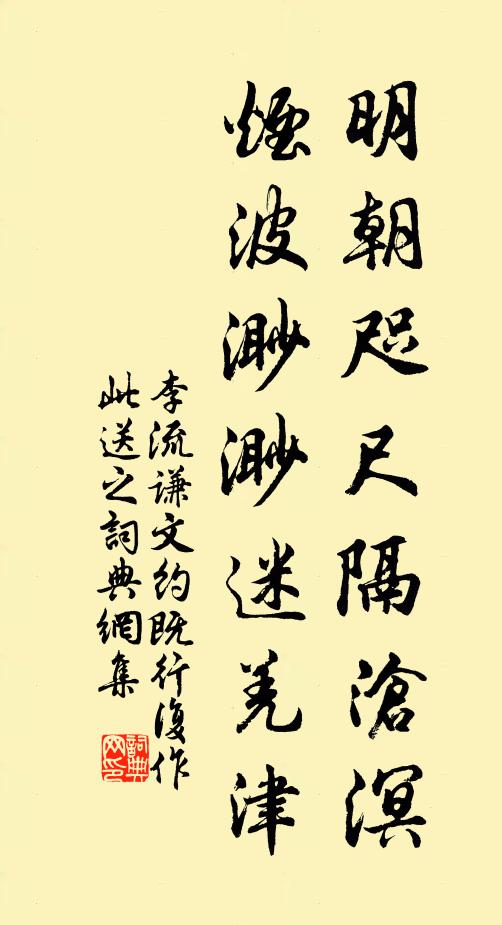 明朝咫尺隔滄溟
煙波渺渺迷羌津
李流謙文約既行復作
此送之詞典網集
詞典网印